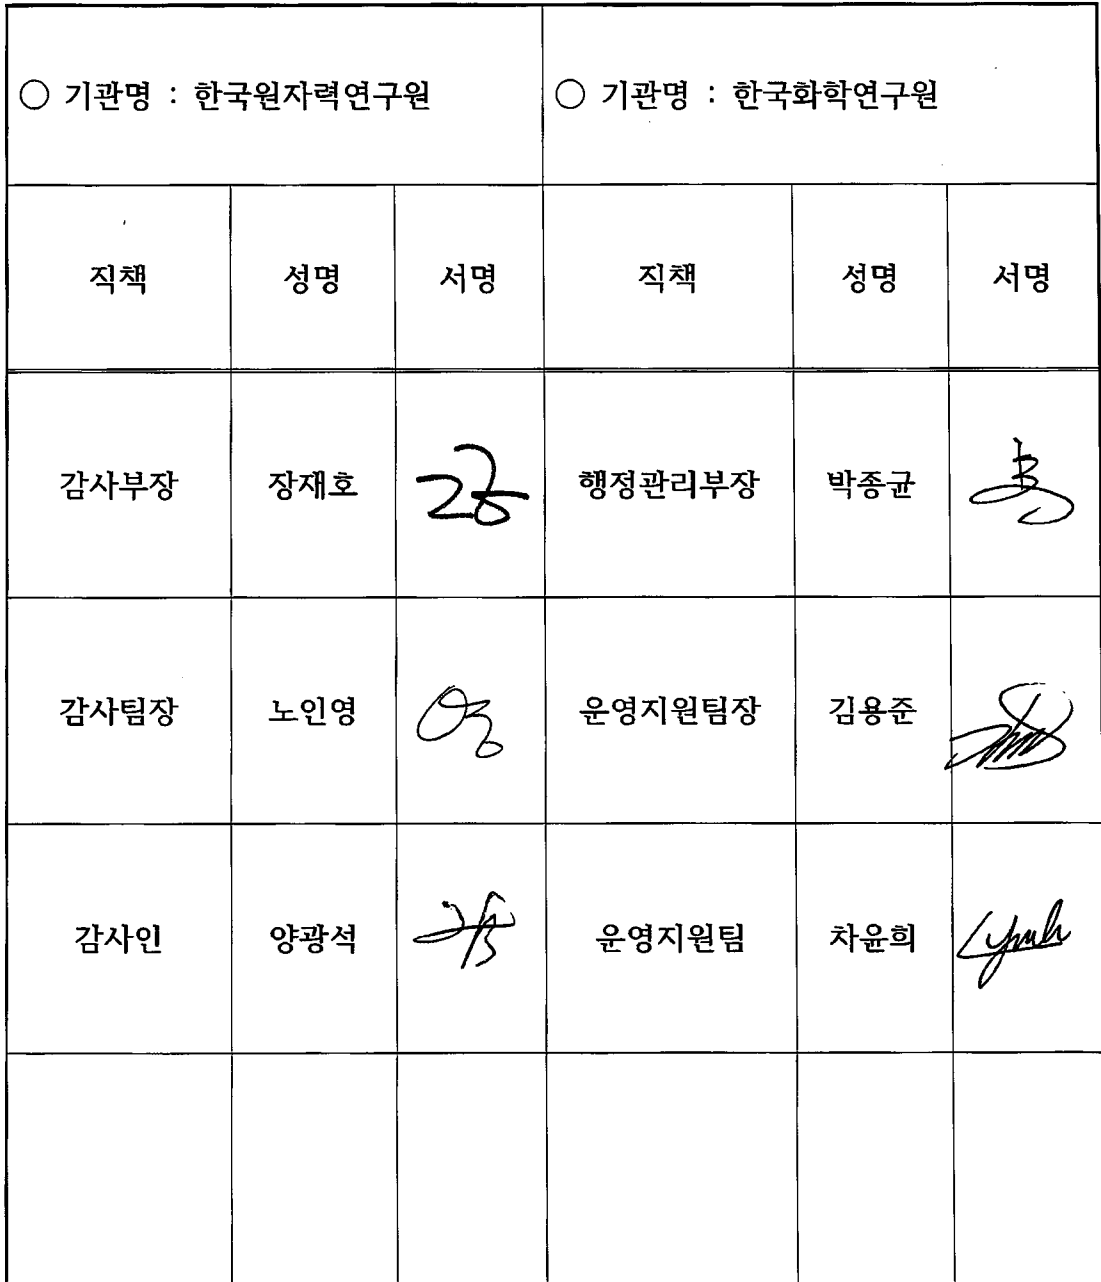 ○ 기관명 : 한국원자력연구원 ○ 기관명 : 한국화학연구원
직책 성명 서명 직책 성명 서명
감사부장 장재호 행정관리부장 박종균
감사팀장 노인영 운영지원팀장 김용준
감사인 양광석 운영지원팀 차윤희